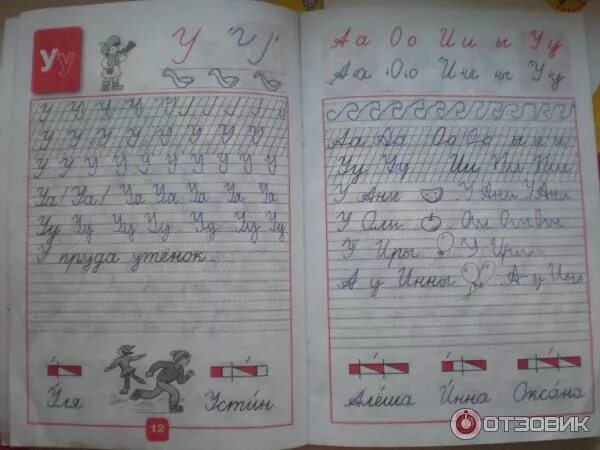 Уу
У У
У У У У У У У У У У
У У У У У У У У У
У У У У У У У У У У
Уа! Уа! Уа Уа Уа Уа Уа
Уу Уу Уу Уу Уу Уу Уу
У пруда утёнок.
У́ля Усти́н
12
А а О о И и ы У у
А а О о И и ы У у
Аа Аа Оо Оо ы ы ы
Уу Уу Ии Ии Ии
У Ани У Ани У Ани
У Оли
У Иры У Иры
А у Инны А у Инны
Алёша И́нна Окса́на
ОТЗОВИК